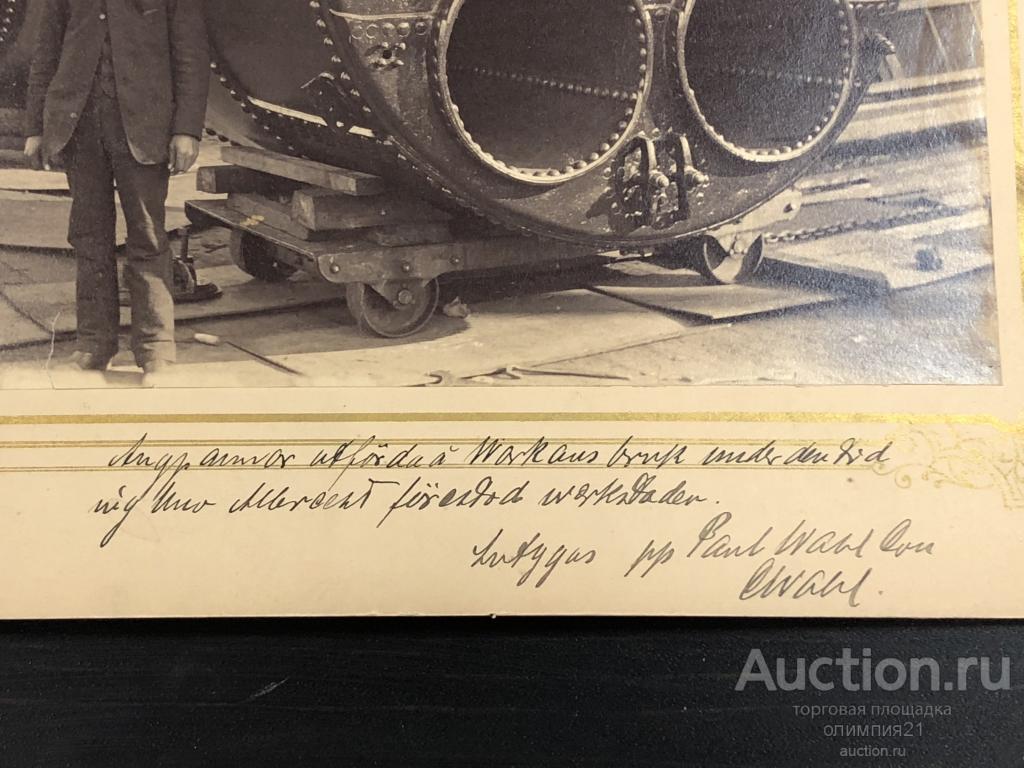 Angpannor utförda å Warkaus bruk under den tid
ing Uno Albrecht förestod verkstaden.
Intygas pp Paul Wahl Co
CWahl.
Auction.ru
торговая площадка
олимпия21
auction.ru